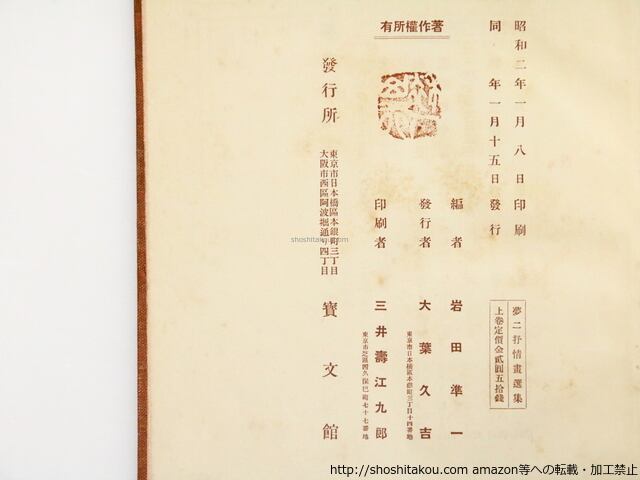 昭和二年一月八日印刷
同年一月十五日發行
夢二抒情畫選集
上卷定價金貳圓五拾錢
著作權所有
編者 岩田準一
發行者 大葉久吉
東京市日本橋區本銀町三丁目十四番地
印刷者 三井壽江九郎
東京市芝區四久保巴町七十七番地
發行所
東京市日本橋區本銀町三丁目
大阪市西區阿波堀通リ四丁目
寶文館
shoshitakou.com
http://shoshitakou.com amazon等への転載・加工禁止